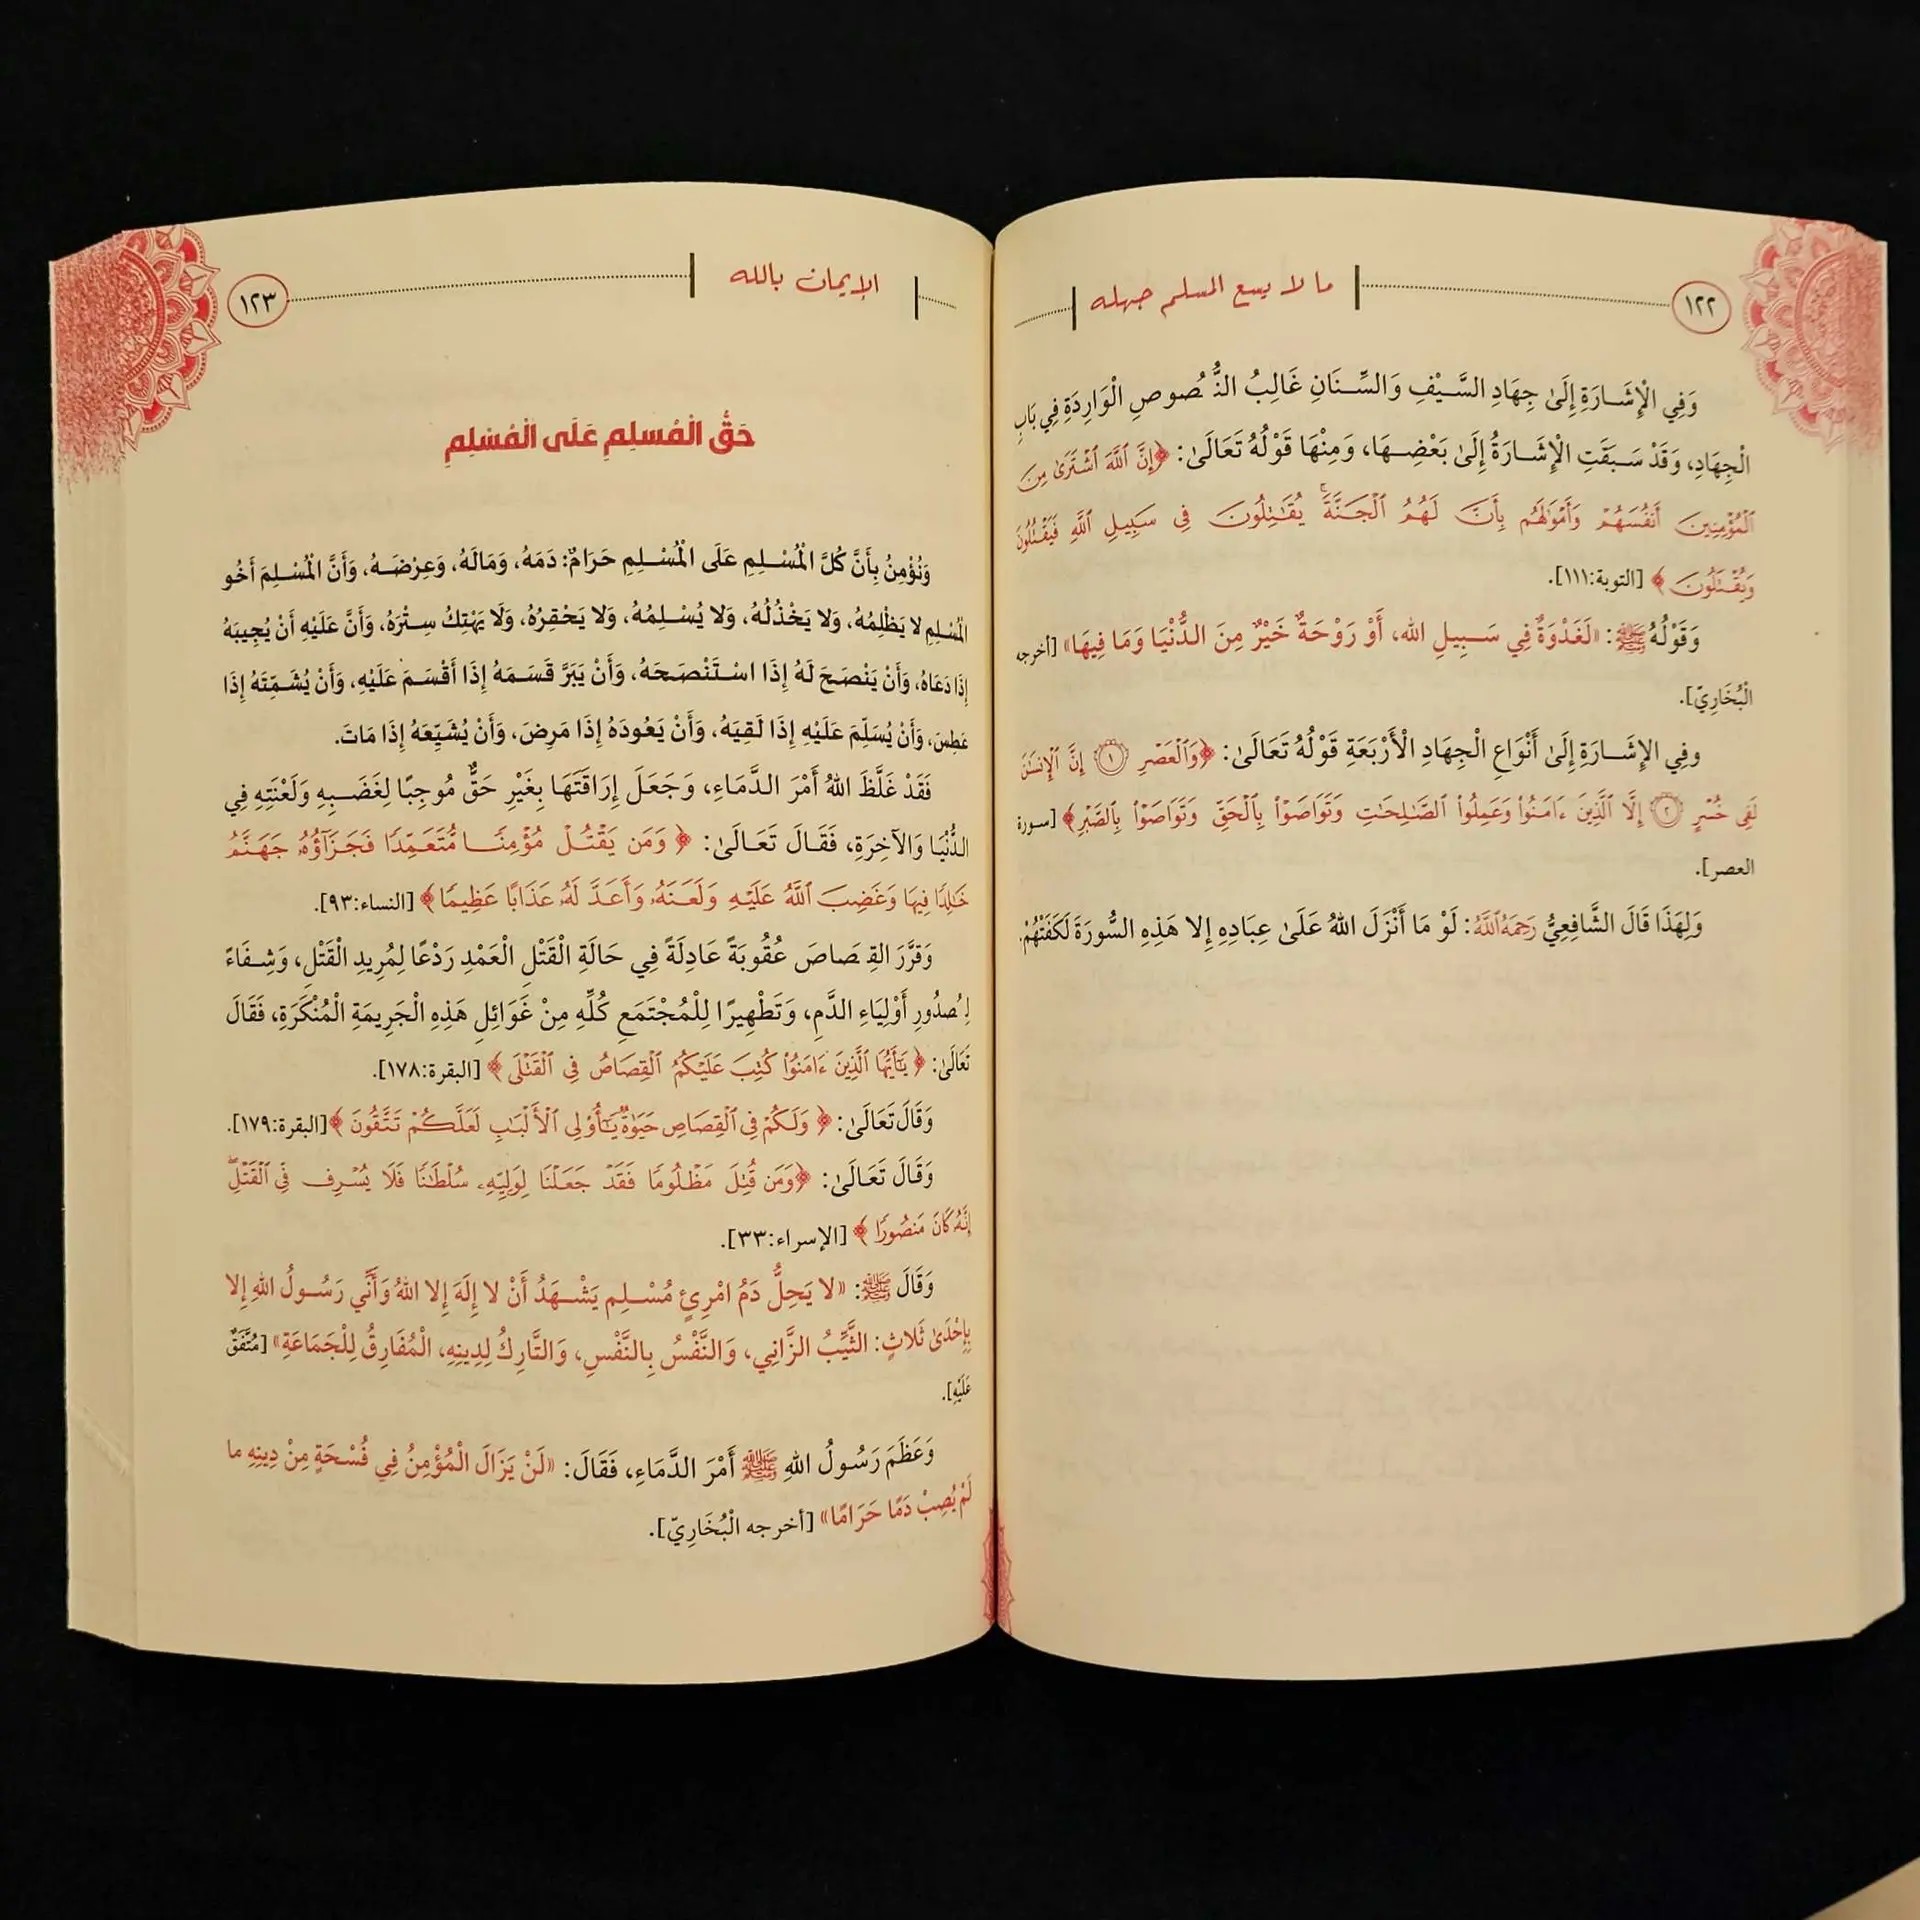 ١٢٢
ما لا يسع المسلم جهله
وَفِي الْإِشَارَةِ إِلَىٰ جِهَادِ السَّيْفِ وَالسِّنَانِ غَالِبُ النُّصُوصِ الْوَارِدَةِ فِي بَابِ
الْجِهَادِ، وَقَدْ سَبَقَتِ الْإِشَارَةُ إِلَىٰ بَعْضِهَا، وَمِنْهَا قَوْلُهُ تَعَالَىٰ: ﴿إِنَّ ٱللَّهَ ٱشْتَرَىٰ مِنَ
ٱلْمُؤْمِنِينَ أَنفُسَهُمْ وَأَمْوَٰلَهُم بِأَنَّ لَهُمُ ٱلْجَنَّةَۚ يُقَٰتِلُونَ فِى سَبِيلِ ٱللَّهِ فَيَقْتُلُونَ
وَيُقْتَلُونَ﴾ [التوبة:١١١].
وَقَوْلُهُ ﷺ: «لَغَدْوَةٌ فِي سَبِيلِ الله، أَوْ رَوْحَةٌ خَيْرٌ مِنَ الدُّنْيَا وَمَا فِيهَا» [أخرجه
الْبُخَارِيّ].
وفِي الإِشَارَةِ إِلَىٰ أَنْوَاعِ الْجِهَادِ الْأَرْبَعَةِ قَوْلُهُ تَعَالَىٰ: ﴿وَٱلْعَصْرِ ١ إِنَّ ٱلْإِنسَٰنَ
لَفِى خُسْرٍ ٢ إِلَّا ٱلَّذِينَ ءَامَنُوا۟ وَعَمِلُوا۟ ٱلصَّٰلِحَٰتِ وَتَوَاصَوْا۟ بِٱلْحَقِّ وَتَوَاصَوْا۟ بِٱلصَّبْرِ﴾ [سورة
العصر].
وَلِهَذَا قَالَ الشَّافِعِيُّ رَحِمَهُ ٱللَّهُ: لَوْ مَا أَنْزَلَ اللهُ عَلَىٰ عِبَادِهِ إِلا هَذِهِ السُّورَةَ لَكَفَتْهُمْ.
الإيمان بالله
١٢٣
حَقُّ الْمُسلِمِ عَلَى الْمُسْلِمِ
وَنُؤْمِنُ بِأَنَّ كُلَّ الْمُسْلِمِ عَلَى الْمُسْلِمِ حَرَامٌ: دَمَهُ، وَمَالَهُ، وَعِرْضَهُ، وَأَنَّ الْمُسْلِمَ أَخُو
الْمُسْلِمِ لا يَظْلِمُهُ، وَلا يَخْذُلُهُ، وَلا يُسْلِمُهُ، وَلا يَحْقِرُهُ، وَلَا يَهْتِكُ سِتْرَهُ، وَأَنَّ عَلَيْهِ أَنْ يُجِيبَهُ
إِذَا دَعَاهُ، وَأَنْ يَنْصَحَ لَهُ إِذَا اسْتَنْصَحَهُ، وَأَنْ يَبَرَّ قَسَمَهُ إِذَا أَقْسَمَ عَلَيْهِ، وَأَنْ يُشَمِّتَهُ إِذَا
عَطِسَ، وَأَنْ يُسَلِّمَ عَلَيْهِ إِذَا لَقِيَهُ، وَأَنْ يَعُودَهُ إِذَا مَرِضَ، وَأَنْ يُشَيِّعَهُ إِذَا مَاتَ.
فَقَدْ غَلَّظَ اللهُ أَمْرَ الدِّمَاءِ، وَجَعَلَ إِرَاقَتَهَا بِغَيْرِ حَقٍّ مُوجِبًا لِغَضَبِهِ وَلَعْنَتِهِ فِي
الدُّنْيَا وَالآخِرَةِ، فَقَالَ تَعَالَىٰ: ﴿وَمَن يَقْتُلْ مُؤْمِنًا مُّتَعَمِّدًا فَجَزَآؤُهُۥ جَهَنَّمُ
خَٰلِدًا فِيهَا وَغَضِبَ ٱللَّهُ عَلَيْهِ وَلَعَنَهُۥ وَأَعَدَّ لَهُۥ عَذَابًا عَظِيمًا﴾ [النساء:٩٣].
وَقَرَّرَ القِصَاصَ عُقُوبَةً عَادِلَةً فِي حَالَةِ الْقَتْلِ الْعَمْدِ رَدْعًا لِمُرِيدِ الْقَتْلِ، وَشِفَاءً
لِصُدُورِ أَوْلِيَاءِ الدَّمِ، وَتَطْهِيرًا لِلْمُجْتَمَعِ كُلِّهِ مِنْ غَوَائِلِ هَذِهِ الْجَرِيمَةِ الْمُنْكَرَةِ، فَقَالَ
تَعَالَىٰ: ﴿يَٰٓأَيُّهَا ٱلَّذِينَ ءَامَنُوا۟ كُتِبَ عَلَيْكُمُ ٱلْقِصَاصُ فِى ٱلْقَتْلَى﴾ [البقرة:١٧٨].
وَقَالَ تَعَالَىٰ: ﴿وَلَكُمْ فِى ٱلْقِصَاصِ حَيَوٰةٌ يَٰٓأُو۟لِى ٱلْأَلْبَٰبِ لَعَلَّكُمْ تَتَّقُونَ﴾ [البقرة:١٧٩].
وَقَالَ تَعَالَىٰ: ﴿وَمَن قُتِلَ مَظْلُومًا فَقَدْ جَعَلْنَا لِوَلِيِّهِۦ سُلْطَٰنًا فَلَا يُسْرِف فِّى ٱلْقَتْلِۖ
إِنَّهُۥ كَانَ مَنصُورًا﴾ [الإسراء:٣٣].
وَقَالَ ﷺ: «لا يَحِلُّ دَمُ امْرِئٍ مُسْلِمٍ يَشْهَدُ أَنْ لا إِلَهَ إِلا اللهُ وَأَنِّي رَسُولُ اللهِ إِلا
بِإِحْدَىٰ ثَلاثٍ: الثَّيِّبُ الزَّانِي، وَالنَّفْسُ بِالنَّفْسِ، وَالتَّارِكُ لِدِينِهِ، الْمُفَارِقُ لِلْجَمَاعَةِ» [مُتَّفَقٌ
عَلَيْهِ].
وَعَظَمَ رَسُولُ اللهِ ﷺ أَمْرَ الدِّمَاءِ، فَقَالَ: «لَنْ يَزَالَ الْمُؤْمِنُ فِي فُسْحَةٍ مِنْ دِينِهِ ما
لَمْ يُصِبْ دَمًا حَرَامًا» [أخرجه الْبُخَارِيّ].